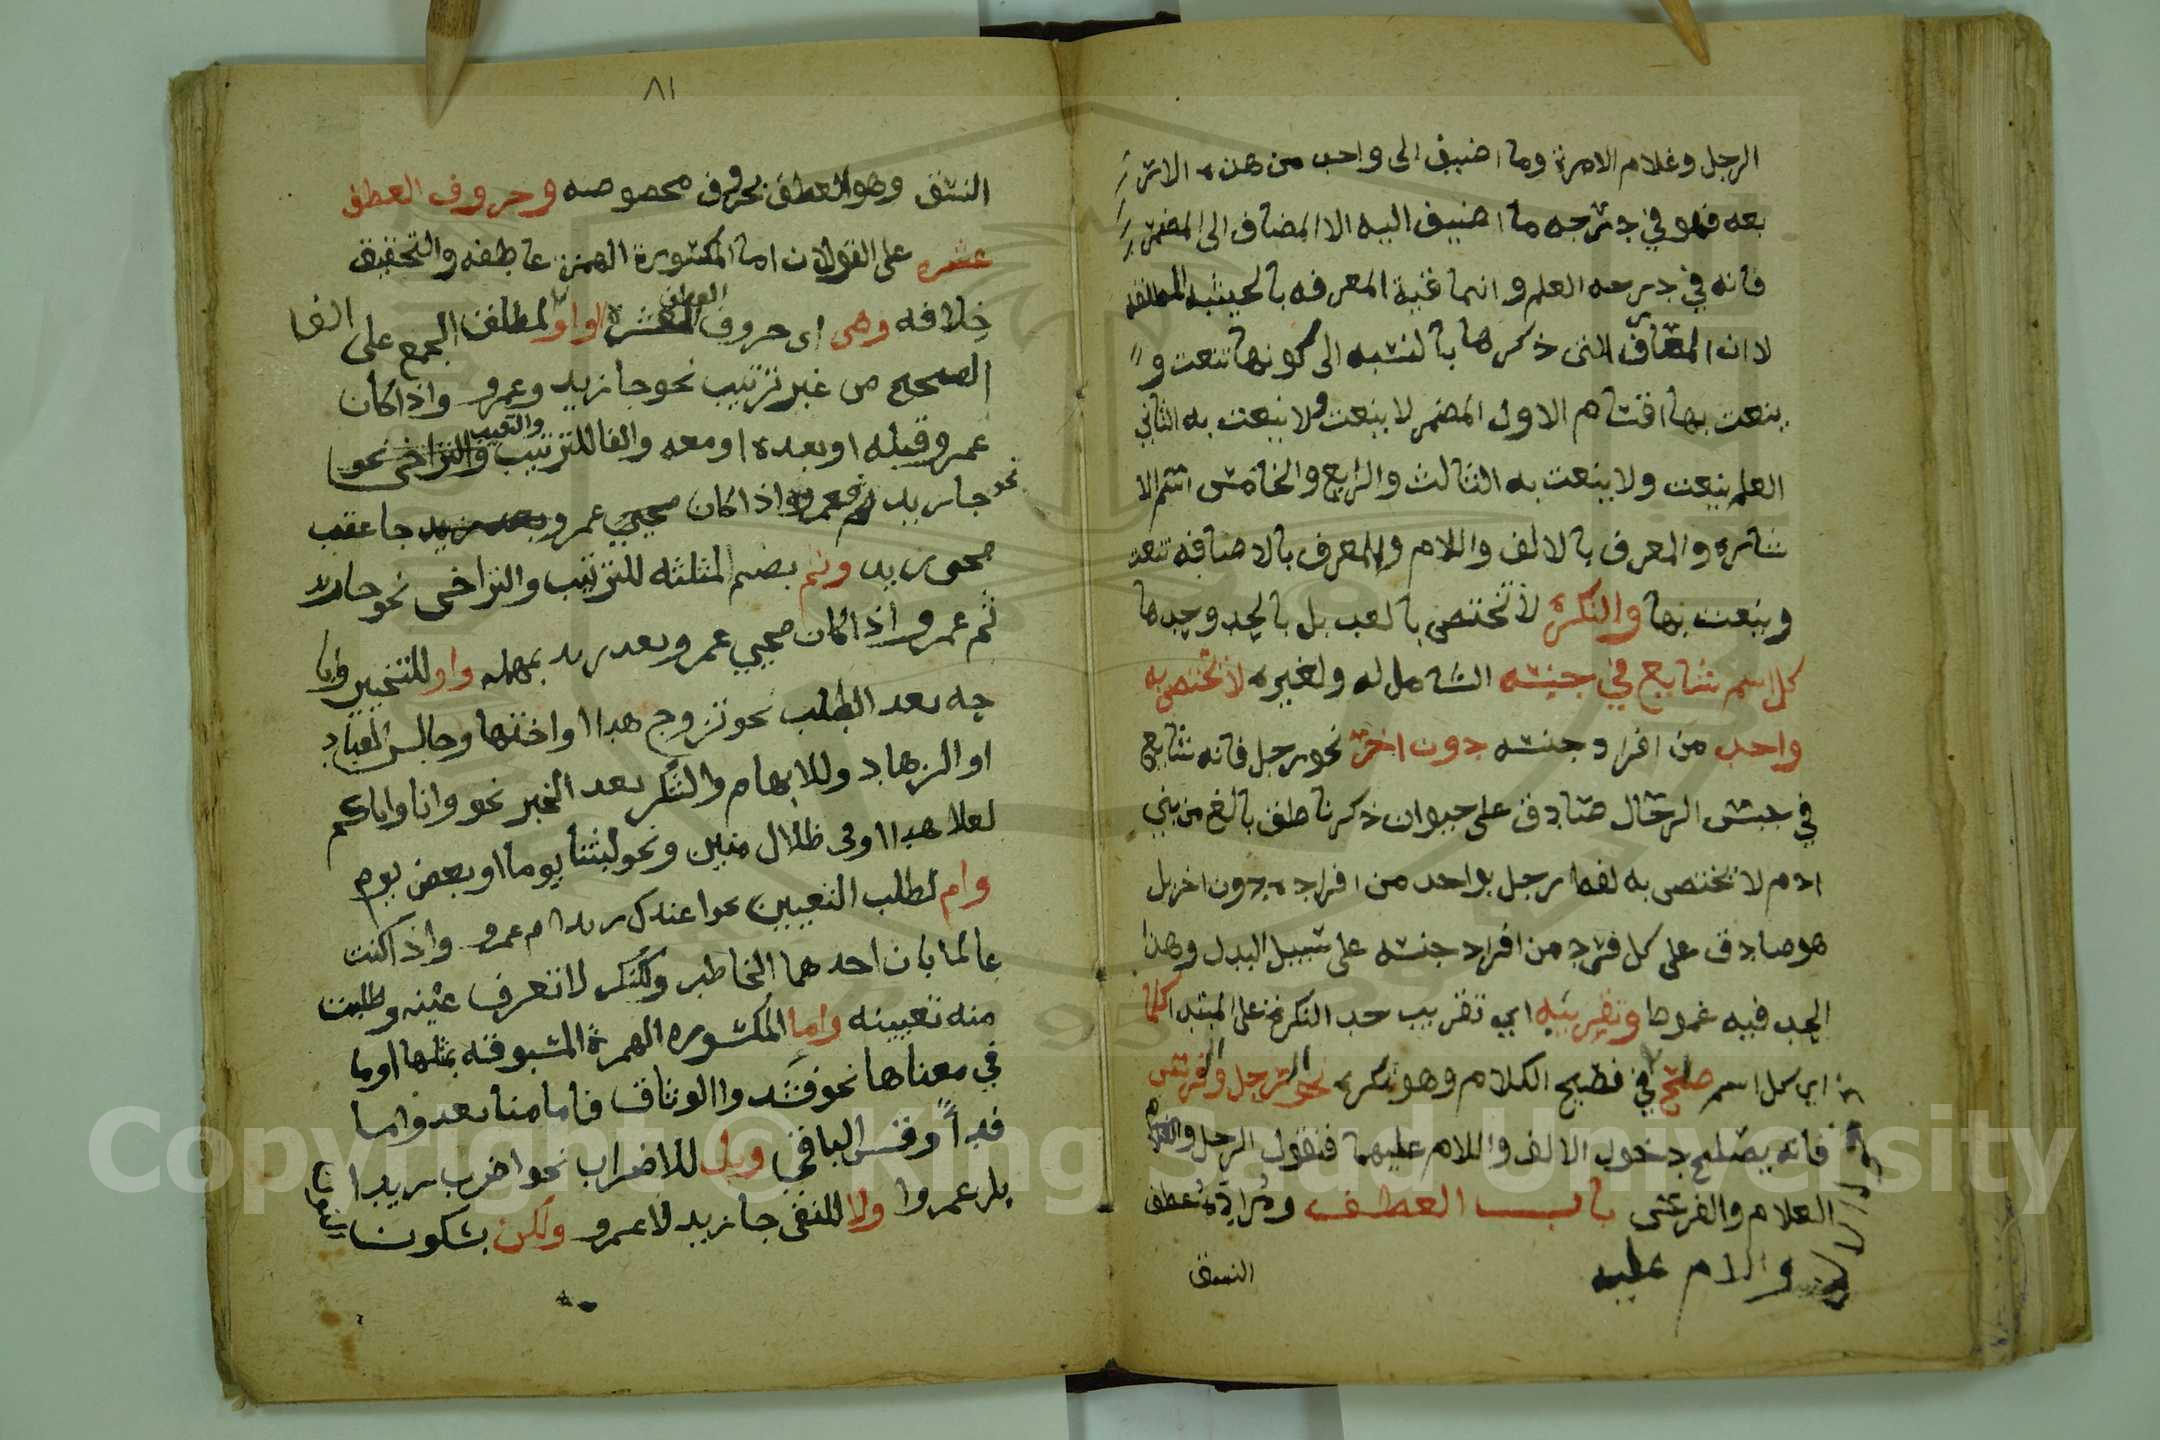 الرجل وغلام الامرة وما اضيف الى واحد من هذه الاتر
بعه فهو في درجه ما اضيف اليه الا المضاف الى المضمر
فانه في درجه العلم وانما غية المعرفه بالحيثيه
لان المعارف التى ذكرها بالنسبه الى كونها تنعت و
ينعت بها اقسام الاول المضمر لا ينعت ولا ينعت به الثاني
العلم ينعت ولا ينعت به الثالث والرابع والخامس اسم الا
شاره والمعرف بالالف واللام والمعرف بالاضافه تنعت
وينعت بها والنكرة لا تختص بالعد بل بالحد وحدها
كل اسم شايع في جنسه الشامل له ولغيره لا تختص به
واحد من افراد جنسه دون اخر نحو رجل فانه شايع
في جنس الرجال صادق على حيوان ذكر ناطق بالغ من بني
ادم لا تختص به لفظ رجل بواحد من افراده دون اخر بل
هو صادق على كل فرد من افراد جنسه على سبيل البدل وهذا
الحد فيه غموض وتقريبه اي تقريب حد النكرة على المبتدا كلما
اي كل اسم صلح في فصيح الكلام وهو نكره نحو الرجل والفرس
فانه يصلح دخول الالف واللام عليهما فتقول الرجل والغلام
الغلام والفرس باب العطف ومراده عطف
واللام عليه
النسق
٨١
النسق وهو العطف بحروف مخصوصه وحروف العطف
عشره على القول ان اما المكسورة الهمزه عاطفه والتحقيق
خلافه وهى اى حروف العطف العشرة الواو لمطلق الجمع على
الصحيح من غير ترتيب نحو جا زيد وعمرو واذا كان
عمرو قبله او بعده او معه والفا للترتيب والتعقيب والتراخى نحو
نحو جا زيد فعمرو اذا كان مجيي عمرو بعد زيد جا عقب
مجى زيد وثم بضم المثلثه للترتيب والتراخى نحو جا زيد
ثم عمرو اذا كان مجيي عمرو بعد زيد بمهله واو للتخيير وابا
حه بعد الطلب نحو تزوج هندا او اختها وجالس العباد
او الزهاد وللابهام والشك بعد الخبر نحو وانا واياكم
لعلا هدا او فى ظلال مبين ونحو لبثنا يوما او بعض يوم
وام لطلب التعيين نحو اعندك زيد ام عمرو واذا كنت
عالما بان احدهما المخاطب ولكنك لا تعرف عينه وطلبت
منه تعيينه واما المكسوره الهمزة المسبوقه بمثلها اوما
في معناها نحو فشدوا الوثاق فاما منا بعد واما
فداً وقس الباقي وبل للاضراب نحو اضرب زيدا
بل عمروا ولا للنفى جا زيد لا عمرو ولكن بسكون